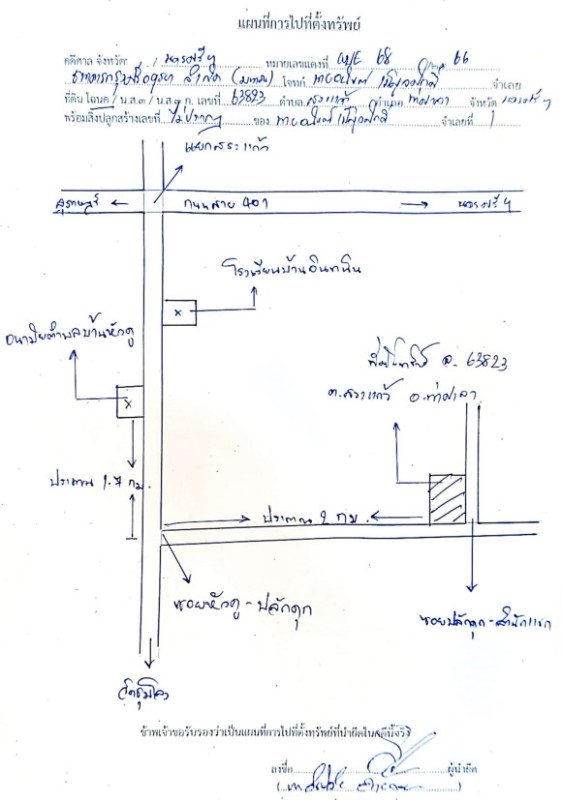 แผนที่การไปที่ตั้งทรัพย์
คดีศาล จังหวัด นครศรีฯ หมายเลขแดงที่ 68 66
ธนาคารกรุงศรีอยุธยา จำกัด (มหาชน) โจทก์ จำเลย
ที่ดิน โฉนด / น.ส.๓ / น.ส.๓ ก. เลขที่ 63823 ตำบล สระแก้ว อำเภอ ท่าศาลา จังหวัด นครศรีฯ
พร้อมสิ่งปลูกสร้างเลขที่ ไม่ปรากฏ ของ จำเลยที่ 1
แยกสระแก้ว
สุราษฎร์ ← ถนนสาย 401 → นครศรีฯ
โรงเรียนบ้านอินทนิน
x
อนามัยตำบลบ้านหัวคู
x
ที่ตั้งทรัพย์ ฉ. 63823
ต.สระแก้ว อ.ท่าศาลา
ประมาณ 1.7 กม.
ประมาณ 2 กม.
ซอยหัวคู-ปลักดุก
ซอยปลักดุก-สำนักแรก
วัดชุมโลง
ข้าพเจ้าขอรับรองว่าเป็นแผนที่การไปที่ตั้งทรัพย์ที่นำยึดในคดีนี้จริง
ลงชื่อ ผู้นำยึด